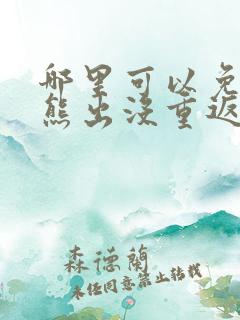 哪里可以免
熊出没重返
森德兰
未经同意禁止转载